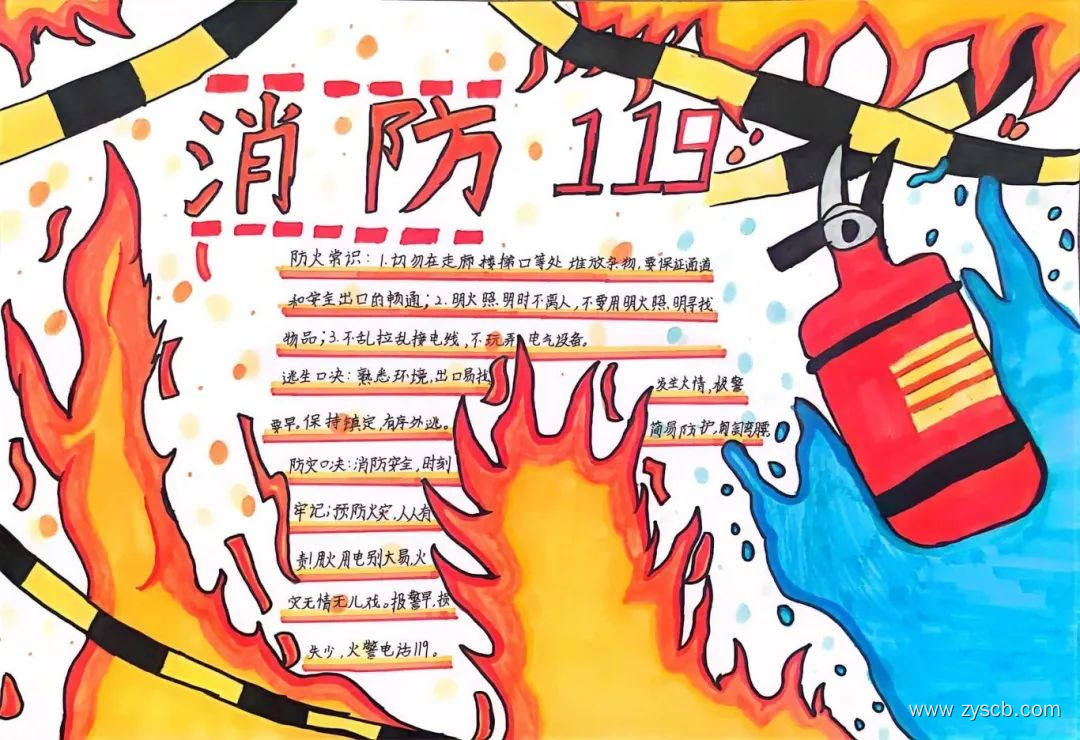 消防 119
防火常识：1.切勿在走廊楼梯口等处堆放杂物，要保证通道
和安全出口的畅通；2.明火照明时不离人，不要用明火照明寻找
物品；3.不乱拉乱接电线，不玩弄电气设备。
逃生口决：熟悉环境，出口易找 发生火情，报警
要早。保持镇定，有序外逃。 简易防护，匍匐弯腰
防灾口决：消防安全，时刻
牢记；预防火灾，人人有
责！用火用电别大易，火
灾无情无儿戏。报警早，损
失少，火警电话119。
www.zyscb.com